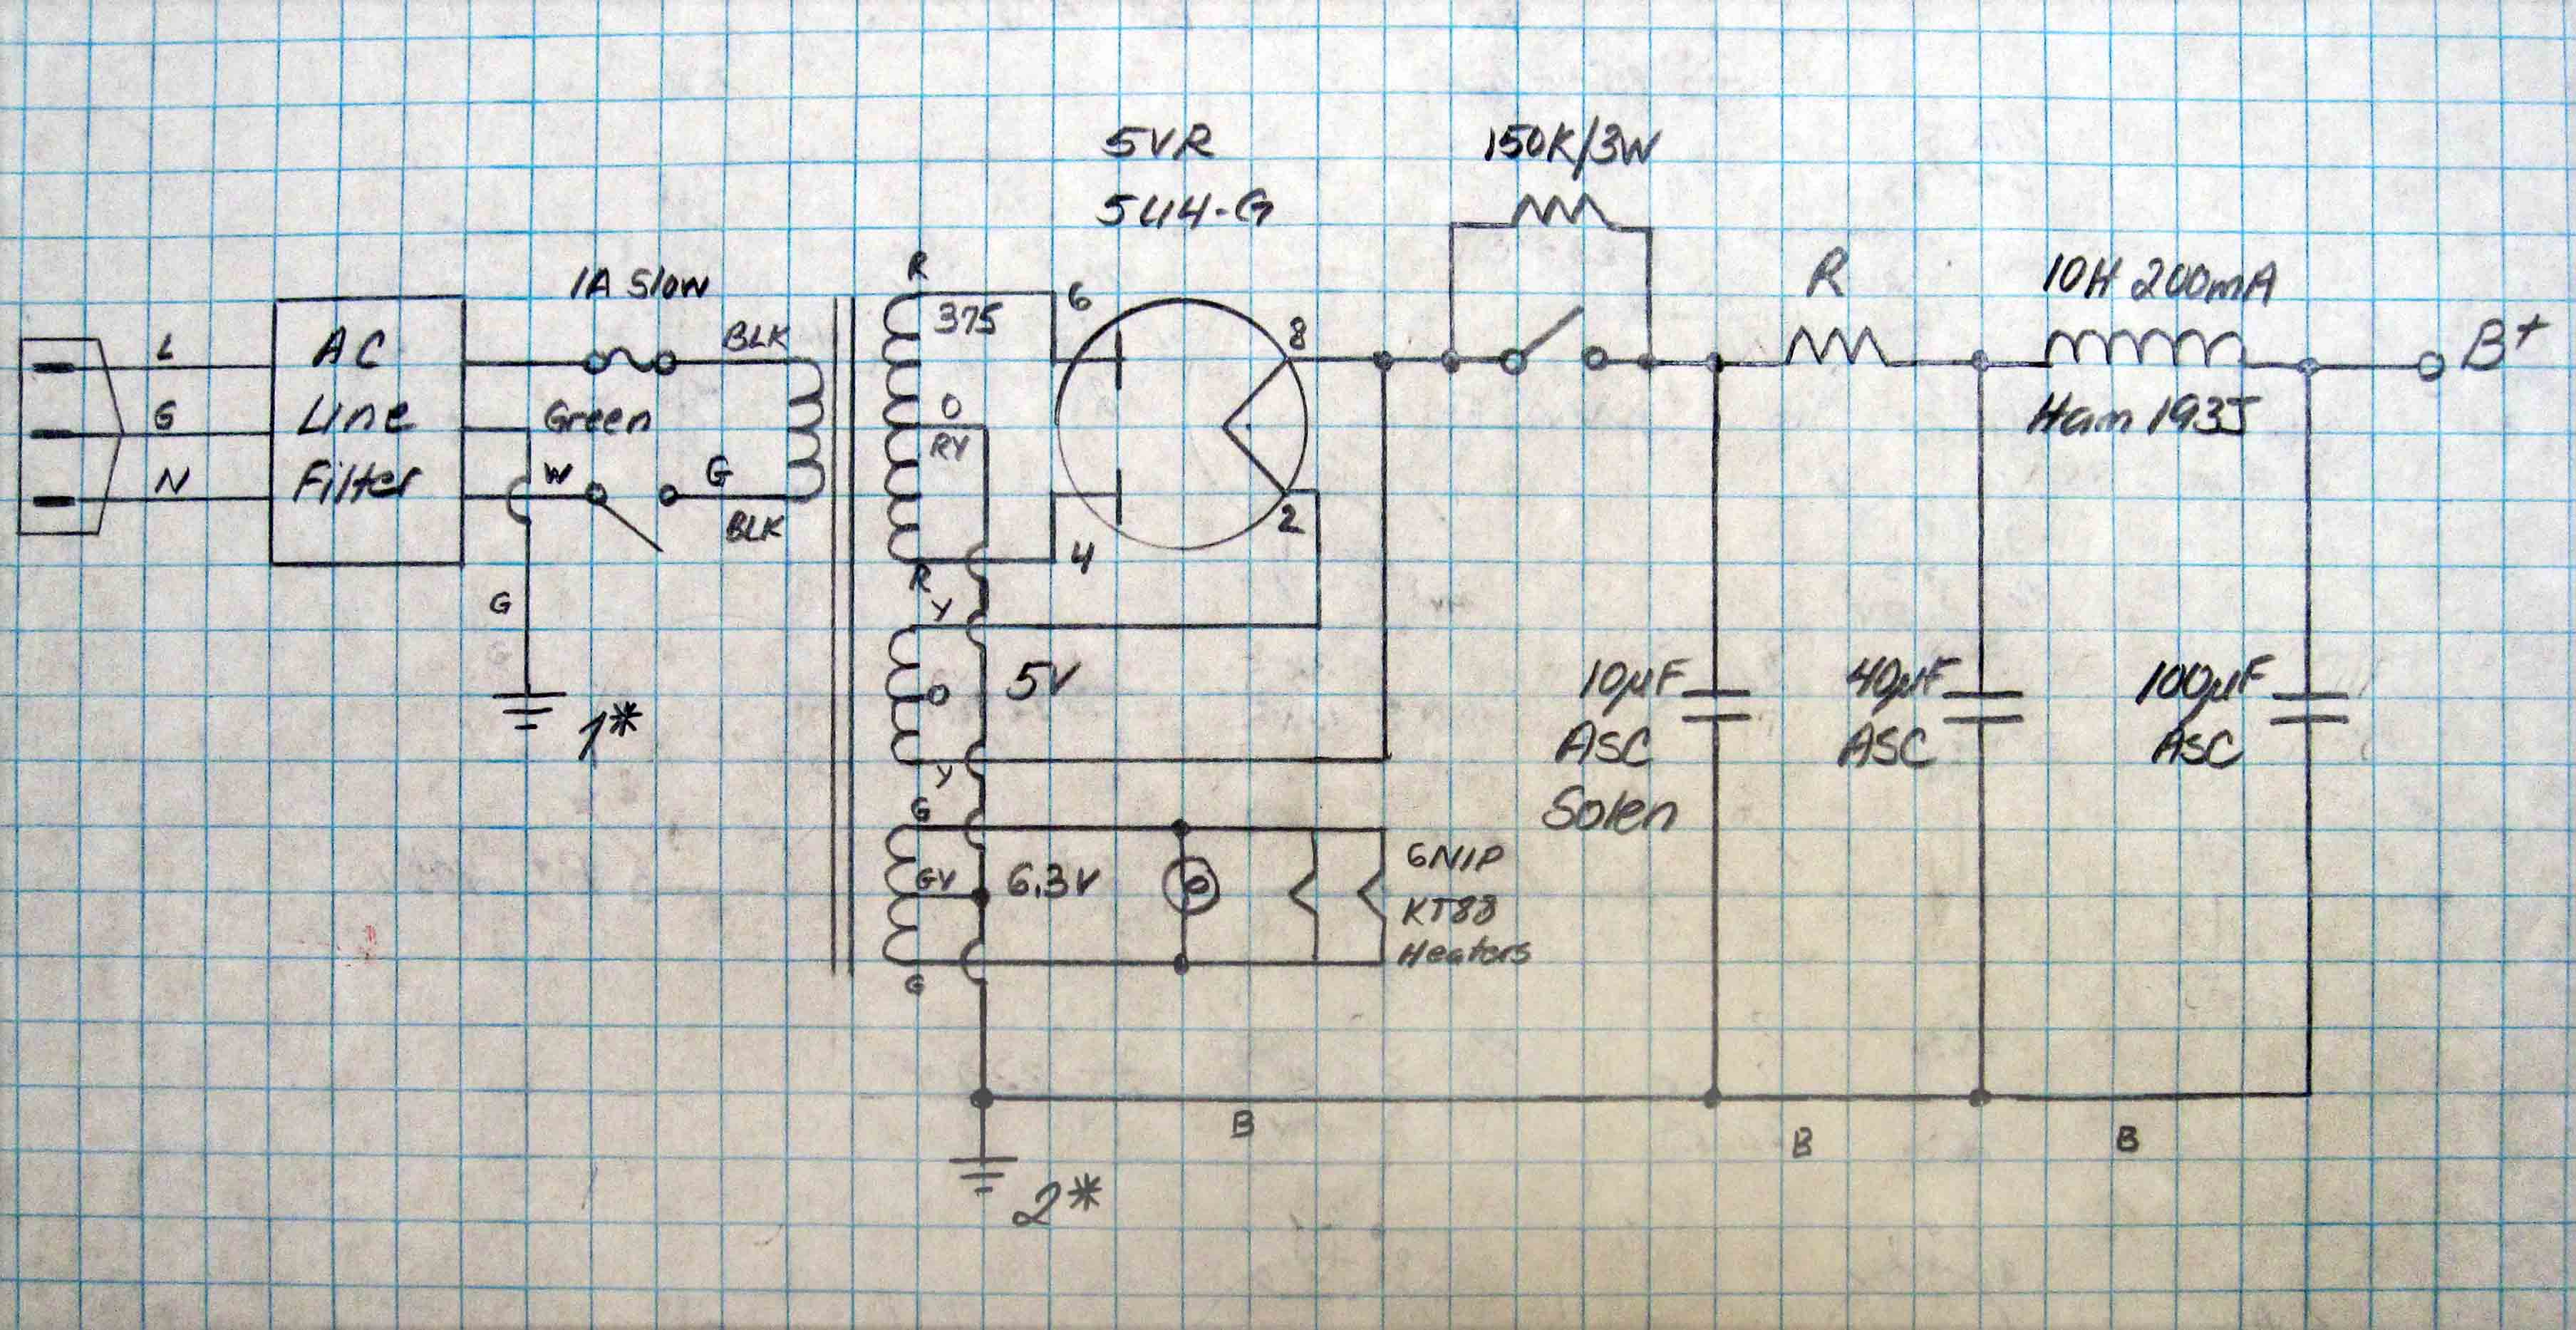 5VR
5U4-G
150K/3W
1A Slow
R
10H 200mA
L
G
N
AC
Line
Filter
BLK
Green
W
G
BLK
G
1*
R
375
0
RY
R
6
4
8
2
B+
Ham 193J
Y
5V
Y
G
GY
6.3V
G
6N1P
KT88
Heaters
10µF
ASC
Solen
40µF
ASC
100µF
ASC
B
B
B
2*